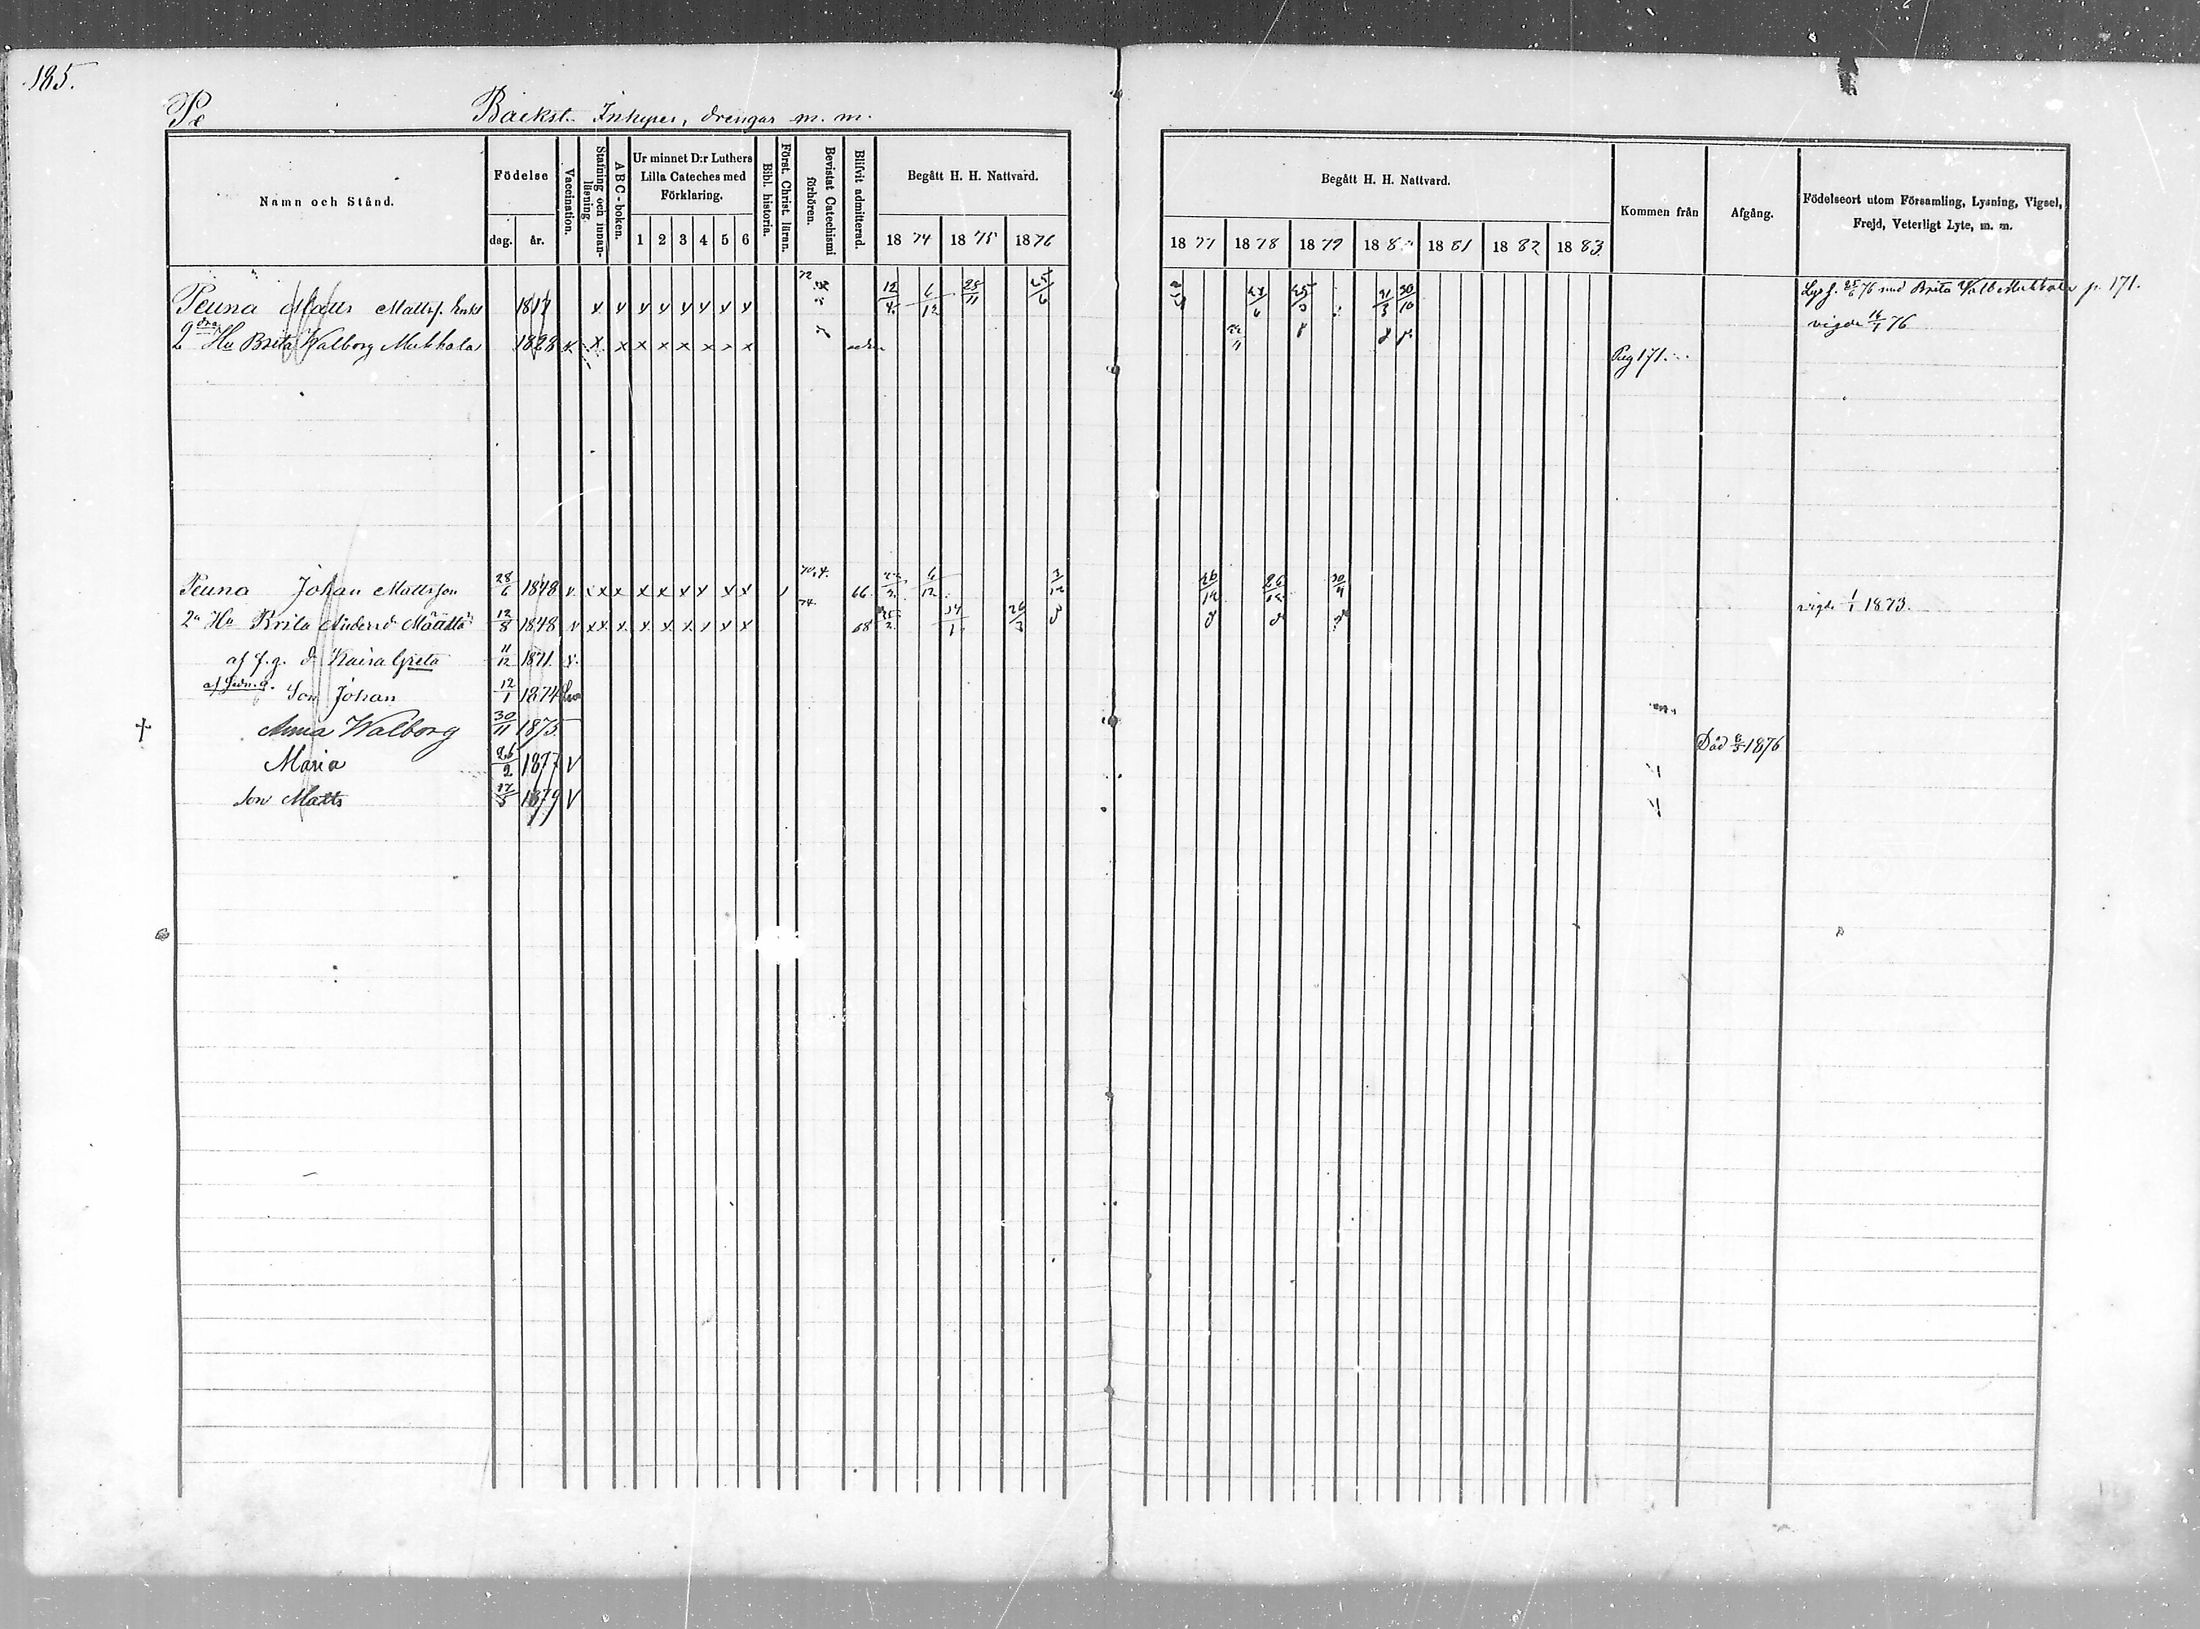 185.
Pe Backst. Inhyses, drengar m. m.
Namn och Stånd. Födelse dag. år. Vaccination. Stafning och innan-läsning. ABC-boken. Ur minnet D:r Luthers Lilla Cateches med Förklaring. 1 2 3 4 5 6 Bibl. historia. Först. Christ. läran. Bevistat Catechismi förhören. Blifvit admitterad. Begått H. H. Nattvard. 1874 1875 1876
Begått H. H. Nattvard. 1877 1878 1879 1880 1881 1882 1883 Kommen från Afgång. Födelseort utom Församling, Lysning, Vigsel, Frejd, Veterligt Lyte, m. m.
Peuna Matts Mattss. Enkl 1817 x x x x x x x x 12/4 6/12 28/11 25/6 Lys f. 25/6 76 med Brita Walb Mukkala p. 171.
vigde 16/1 76
2 dra Hu Brita Walborg Mukkala 1828 x x x x x x x x x Pag 171.
Peuna Johan Mattsson 28/6 1848 v x x x x x x x x x 66 6/12 3/12 26/12 30/4
2a Hu Brita Andersd. Määttä 12/8 1848 v x x x x x x x x x 74 68 26/3 vigde 1/1 1873.
af f. g. d Kaisa Greta 11/12 1871 v.
af sedn. g. Son Johan 12/1 1874
† Anna Walborg 30/11 1875 Död 8/3 1876
Maria 26/2 1877 V
son Matts 17/5 1879 V